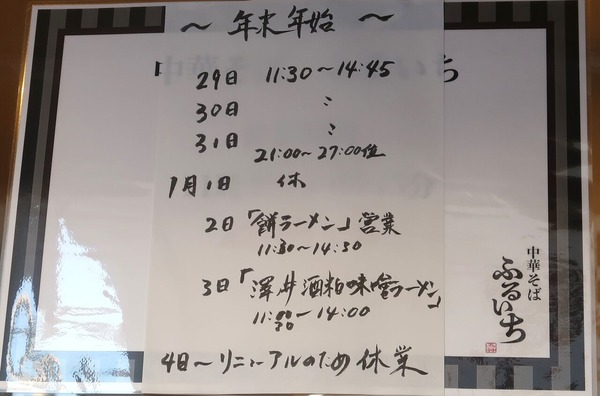 ～ 年末年始 ～
29日 11:30～14:45
30日 〃
31日 〃
21:00～27:00位
1月1日 休
2日「餅ラーメン」営業
11:30～14:30
3日「澤井酒粕味噌ラーメン」
11:00～14:00
30
4日～リニューアルのため休業
中華そば
ふるいち